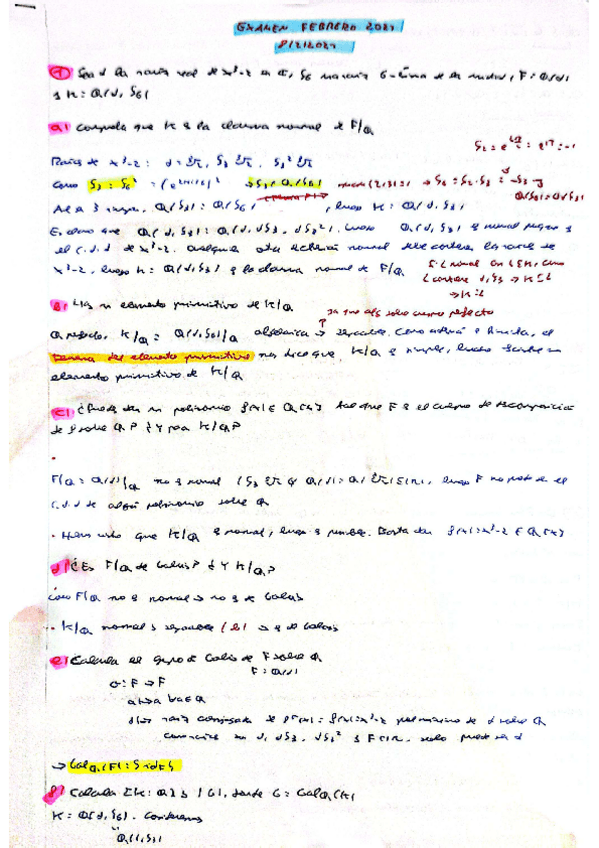 EXAMEN FEBRERO 2021
8/2/2021
① Sea α la raíz real de x³-2 en ℂ, ζ₆ una raíz 6-ésima de la unidad, F = Q(α)
y K = Q(α, ζ₆)
a) Comprueba que K es la clausura normal de F/Q
ζ₂ = e^{2πi/2} = e^{iπ} = -1
Raíces de x³-2 : α = ∛2, ζ₃ ∛2, ζ₃² ∛2
Como ζ₃ = ζ₆² = (e^{2πi/6})² → ζ₃ ∈ Q(ζ₆) mcm(2,3) = → ζ₆ = ζ₂·ζ₃ = -ζ₃
Q(ζ₆) = Q(ζ₃)
Q(ζ₃) = Q(ζ₆), luego K = Q(α, ζ₃)
Es claro que Q(α, ζ₃) = Q(α, αζ₃, αζ₃²), luego Q(α, ζ₃) es normal
el c.d.d de x³-2. Cualquier otra extensión normal debe contener las raíces de
x³-2, luego K = Q(α, ζ₃) es la clausura normal de F/Q
L contiene α, ζ₃ → K ≤ L
→ K = L
b) elemento primitivo de K/Q
ya que Q es cuerpo perfecto
Q perfecto, K/Q = Q(α, ζ₆)/Q algebraica → separable. Como además es finita, el
teorema del elemento primitivo nos dice que K/Q es simple, luego existe un
elemento primitivo de K/Q
c) ¿Puedes dar un polinomio f(x) ∈ Q[x] tal que F es el cuerpo de descomposición
de f sobre Q? ¿Y para K/Q?
F/Q = Q(α)/Q no es normal (ζ₃ ∛2 ∉ Q(α) = Q(∛2) ⊆ ℝ), luego F no puede ser el
c.d.d de algún polinomio sobre Q
- Hemos visto que K/Q es normal, luego es posible. Basta dar f(x) = x³-2 ∈ Q[x]
d) ¿Es F/Q de Galois? ¿Y K/Q?
Como F/Q no es normal → no es de Galois
- K/Q normal y separable (b) → es de Galois
e) Calcula el grupo de Galois de F sobre Q
F = Q(α)
σ: F → F
a ↦ a ∀a ∈ Q
α ↦ raíz conjugada de p(x) = f(x) = x³-2 pol mínimo de α sobre Q
α, αζ₃, αζ₃² y F ⊂ ℝ, solo puede ser α
→ Gal_Q(F) = {id_F}
f) Calcula [K:Q] y |G|, donde G = Gal_Q(K)
K = Q(α, ζ₆). Consideramos
Q(α, ζ₃)